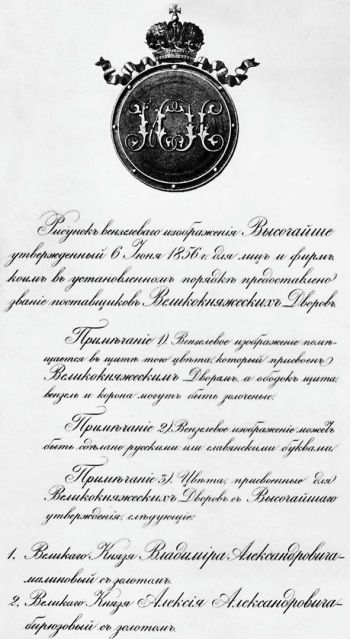 И К
Рисунокъ вензелеваго изображенія Высочайше
утвержденный 6 Іюня 1856 г. для лицъ и фирмъ,
коимъ въ установленномъ порядкѣ предоставлено
званіе поставщиковъ Великокняжескихъ Дворовъ.
Примѣчаніе 1) Вензелевое изображеніе помѣ-
щается въ щитѣ того цвѣта, который присвоенъ
Великокняжескимъ Дворамъ, а ободокъ щита,
вензель и корона могутъ быть золоченые.
Примѣчаніе 2) Вензелевое изображеніе можетъ
быть сдѣлано русскими или славянскими буквами.
Примѣчаніе 3) Цвѣта, присвоенные для
Великокняжескихъ Дворовъ съ Высочайшаго
утвержденія, слѣдующіе:
1. Великаго Князя Владиміра Александровича-
малиновый съ золотомъ.
2. Великаго Князя Алексія Александровича-
бирюзовый съ золотомъ.